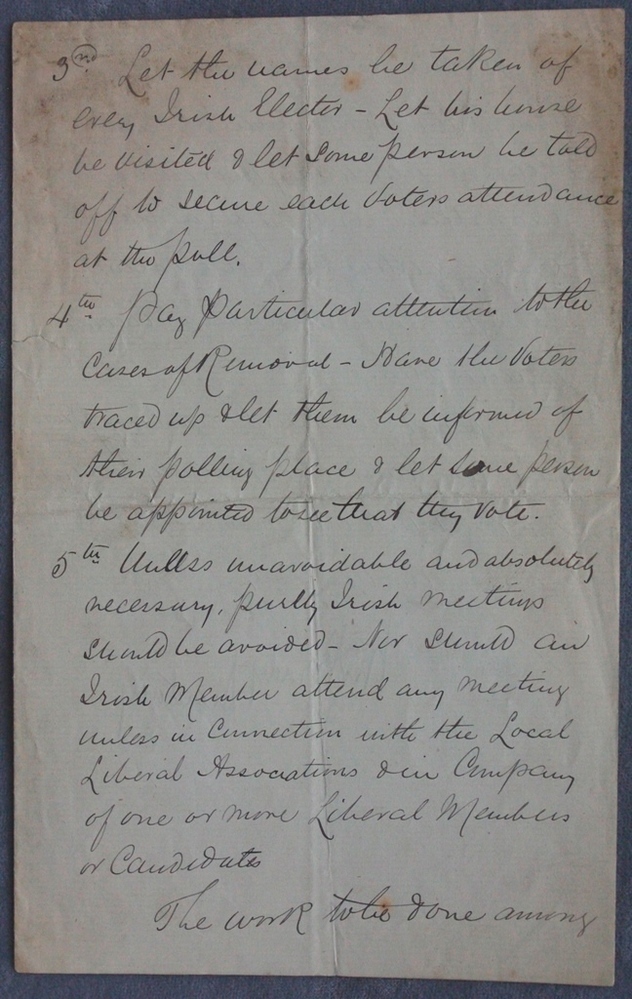 3rd. Let the names be taken of
every Irish Elector - Let his house
be visited & let some person be told
off to secure each voters attendance
at the poll.
4th. Pay particular attention to the
Cases of Removal - Have the Voters
traced up & let them be informed of
their polling place & let some person
be appointed to see that they vote.
5th Unless unavoidable and absolutely
necessary, purely Irish meetings
should be avoided - Nor should an
Irish Member attend any meeting
unless in Connection with the Local
Liberal Associations & in Company
of one or more Liberal Members
or Candidates
The work to be done among